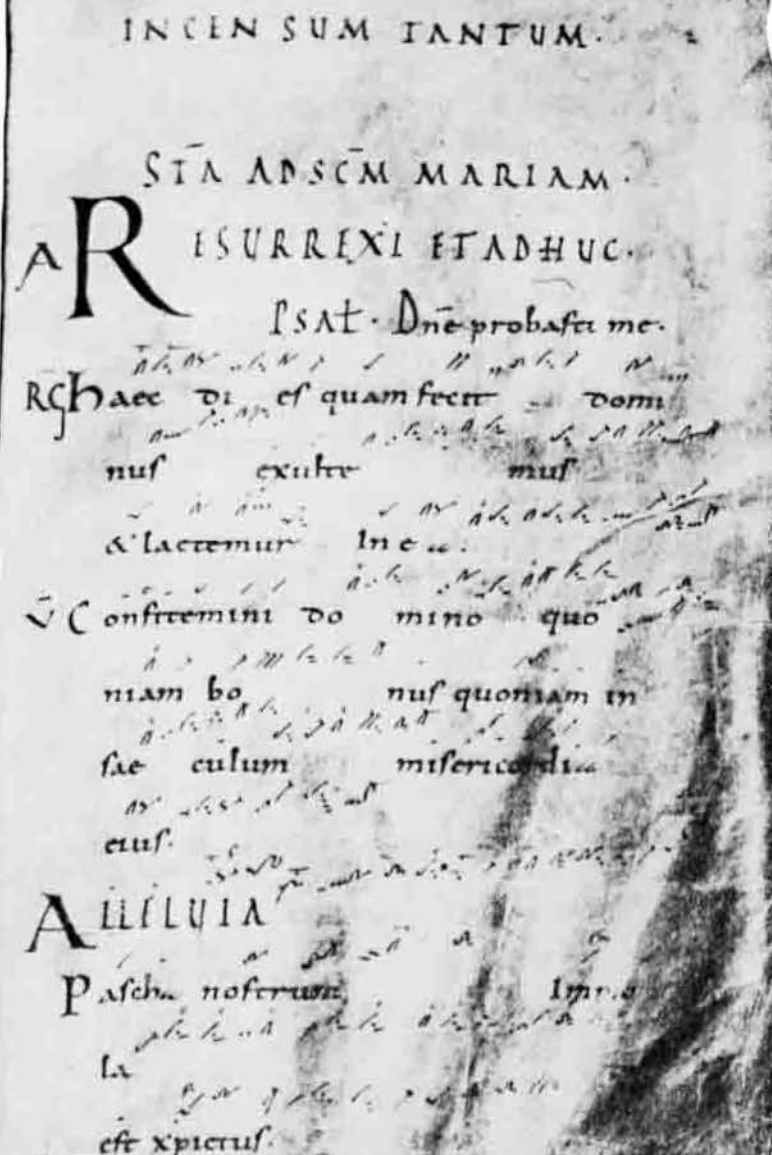 INCENSUM TANTUM.
STA AD SCM MARIAM.
A RESURREXI ET ADHUC.
PSAL. Dne probasti me.
RG haec di es quam fecit domi
nus exulte mus
& laetemur In eo.
V Confitemini do mino quo
niam bo nus quoniam in
sae culum misericordia
eius.
ALLELUIA
Pascha nostrum Immo
la
est xpictus.